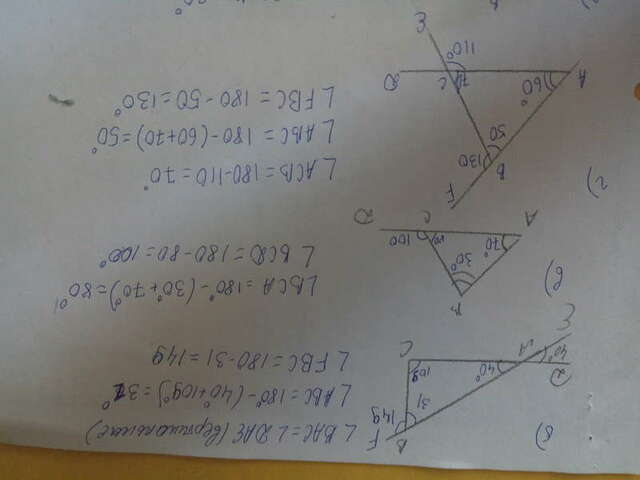 б)
F
B
149
31
109
C
40°
A
40°
D
E
∠BAC = ∠DAE (вертикальные)
∠ABC = 180° - (40° + 109°) = 31°
∠FBC = 180 - 31 = 149
в)
B
30°
70°
A
80
C
100
D
∠BCA = 180° - (30° + 70°) = 80°
∠BCD = 180 - 80 = 100°
г)
F
B
130
50
60°
A
70
C
110°
D
E
∠ACB = 180 - 110 = 70°
∠ABC = 180 - (60 + 70) = 50°
∠FBC = 180 - 50 = 130°